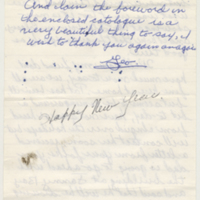 And then the foreword in
the enclosed catalogue is a
very beautiful thing to say, I
wish to thank you again
Leo
Happy New Year